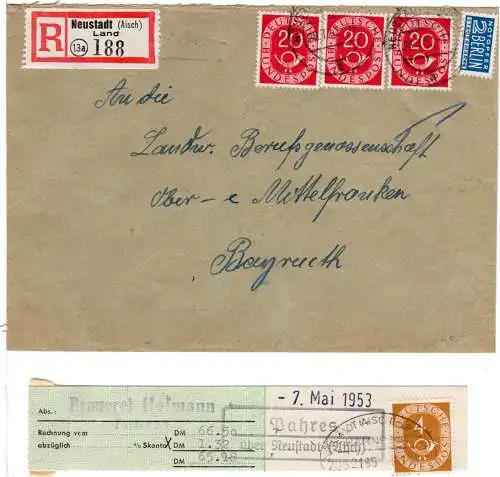 R
Neustadt (Aisch)
Land
(13a) 188
20
DEUTSCHE
BUNDESPOST
20
DEUTSCHE
BUNDESPOST
20
DEUTSCHE
BUNDESPOST
NOTOPFER
2 BERLIN
STEUERMARKE
An die
Landw. Berufsgenossenschaft
Ober- e Mittelfranken
Bayreuth
Abs.: Brauerei Hofmann
Pahres
Rechnung vom DM 66.50
abzüglich % Skonto DM 1.32
DM 65.18
- 7. Mai 1953
Pahres
über Neustadt (Aisch)
4
DEUTSCHE
BUNDESPOST